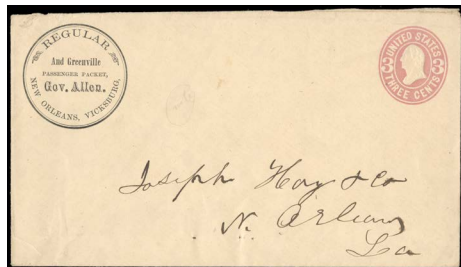 REGULAR
And Greenville
PASSENGER PACKET,
Gov. Allen.
NEW ORLEANS, VICKSBURG,
UNITED STATES
3 3
THREE CENTS
Joseph Hoy & Co
N. Orleans
La